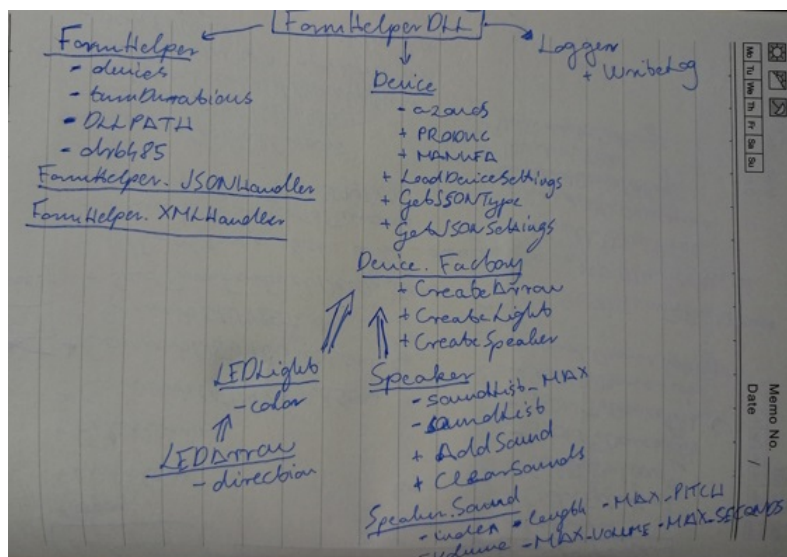 FormHelperDLL
FormHelper
- devices
- turnDurations
- DLLPATH
- dsrb485
FormHelper.JSONHandler
FormHelper.XMLHandler
Device
- azonos
+ PRODUC
+ MANUFA
+ LoadDeviceSettings
+ GetJSONType
+ GetJSONSettings
Logger
+ WriteLog
Device.Factory
+ CreateArrow
+ CreateLight
+ CreateSpeaker
LEDLight
- color
LEDArrow
- direction
Speaker
- soundList_MAX
- soundList
+ AddSound
+ ClearSounds
Speaker.Sound
- index - length - MAX_PITCH
- volume - MAX_VOLUME - MAX_SECONDS
Mo Tu We Th Fr Sa Su
Memo No.
Date /